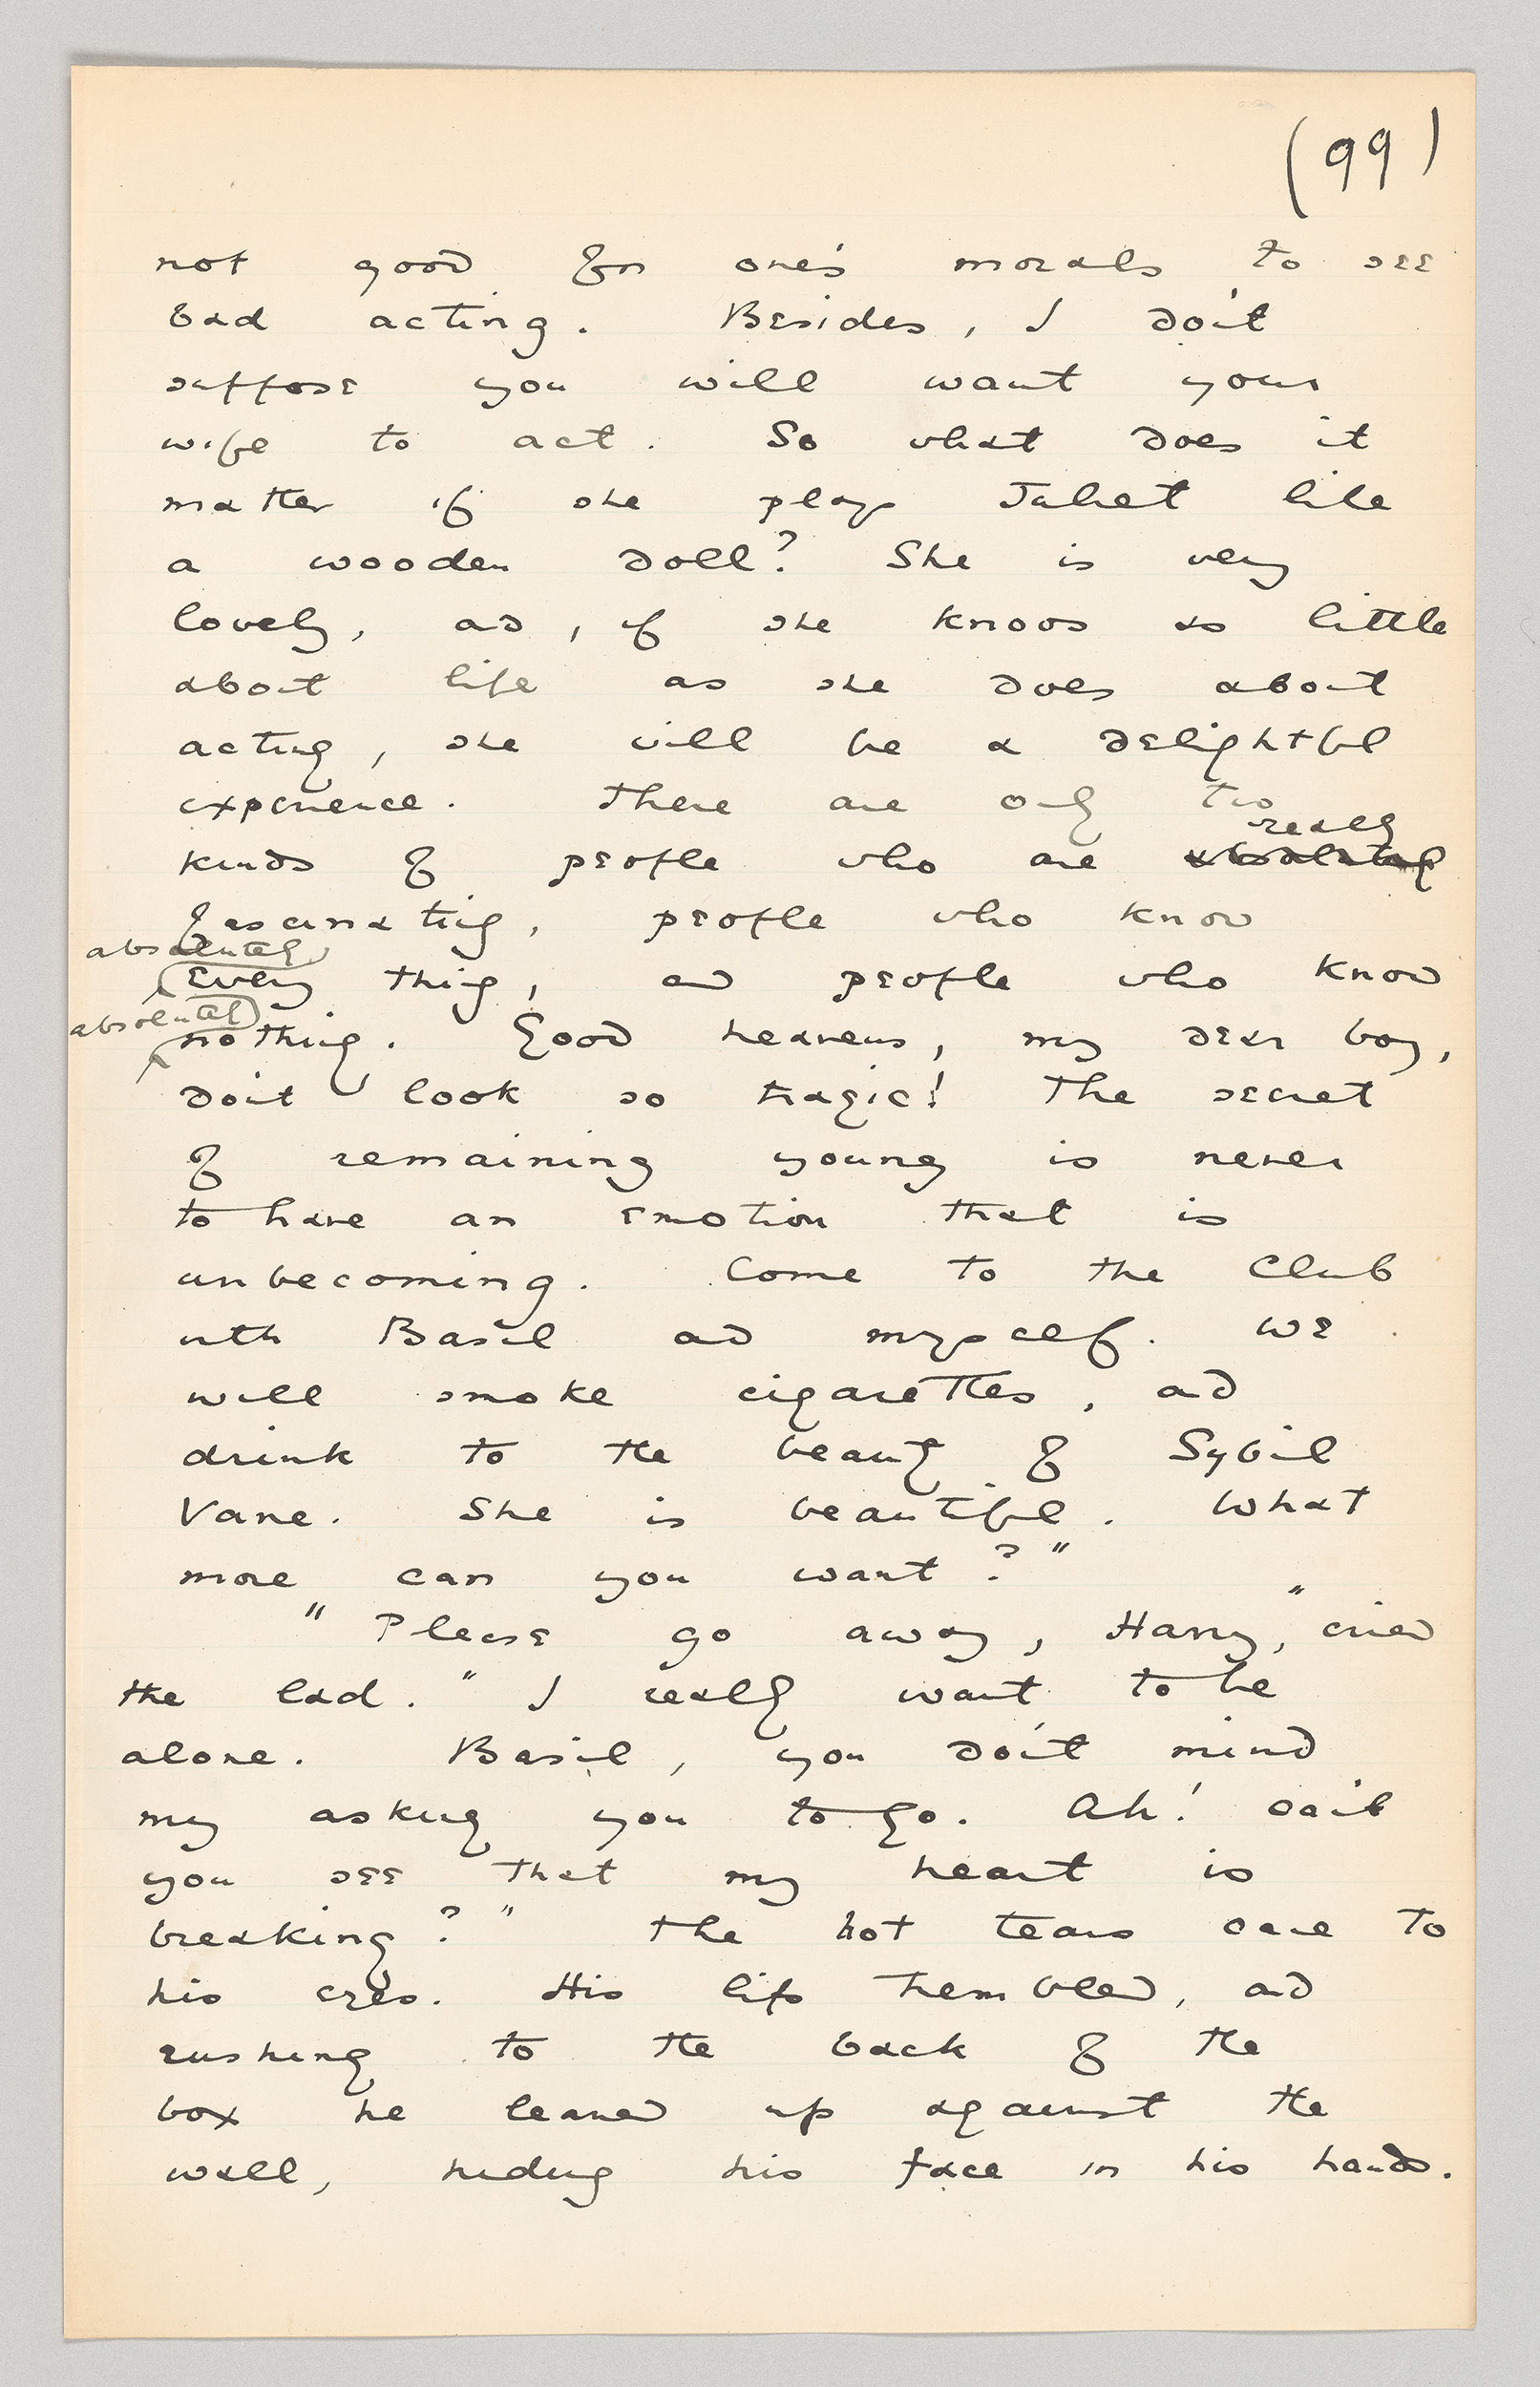 (99)
not good for one's morals to see
bad acting. Besides, I don't
suppose you will want your
wife to act. So what does it
matter if she plays Juliet like
a wooden doll? She is very
lovely, and, if she knows as little
about life as she does about
acting, she will be a delightful
experience. There are only two
really
kinds of people who are absolutely
fascinating, people who know
absolutely
every thing, and people who know
absolutely
nothing. Good heavens, my dear boy,
don't look so tragic! The secret
of remaining young is never
to have an emotion that is
unbecoming. Come to the Club
with Basil and myself. We
will smoke cigarettes, and
drink to the beauty of Sybil
Vane. She is beautiful. What
more can you want?"
"Please go away, Harry," cried
the lad. "I really want to be
alone. Basil, you don't mind
my asking you to go. Ah! can't
you see that my heart is
breaking?" The hot tears came to
his eyes. His lips trembled, and
rushing to the back of the
box he leaned up against the
wall, hiding his face in his hands.